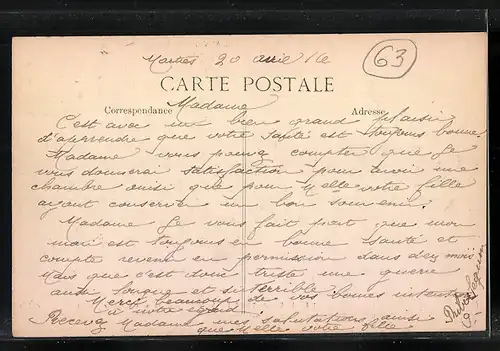 Martes 20 avril 16
63
CARTE POSTALE
Correspondance
Adresse
Madame
C'est avec un bien grand plaisir
d'apprendre que votre santé est toujours bonne
Madame vous pouvez compter que je
vous donnerai satisfaction pour avoir une
chambre ainsi que pour Melle votre fille
ayant conserver un bon souvenir.
Madame Je vous fait part que mon
mari est toujours en bonne santé et
compte revenir en permission dans des mois
Mais que c'est donc triste une guerre
aussi longue et si terrible
Merci beaucoup de vos bonnes intentions
à notre égard.
Recevez Madame mes salutations ainsi
que Melle votre fille